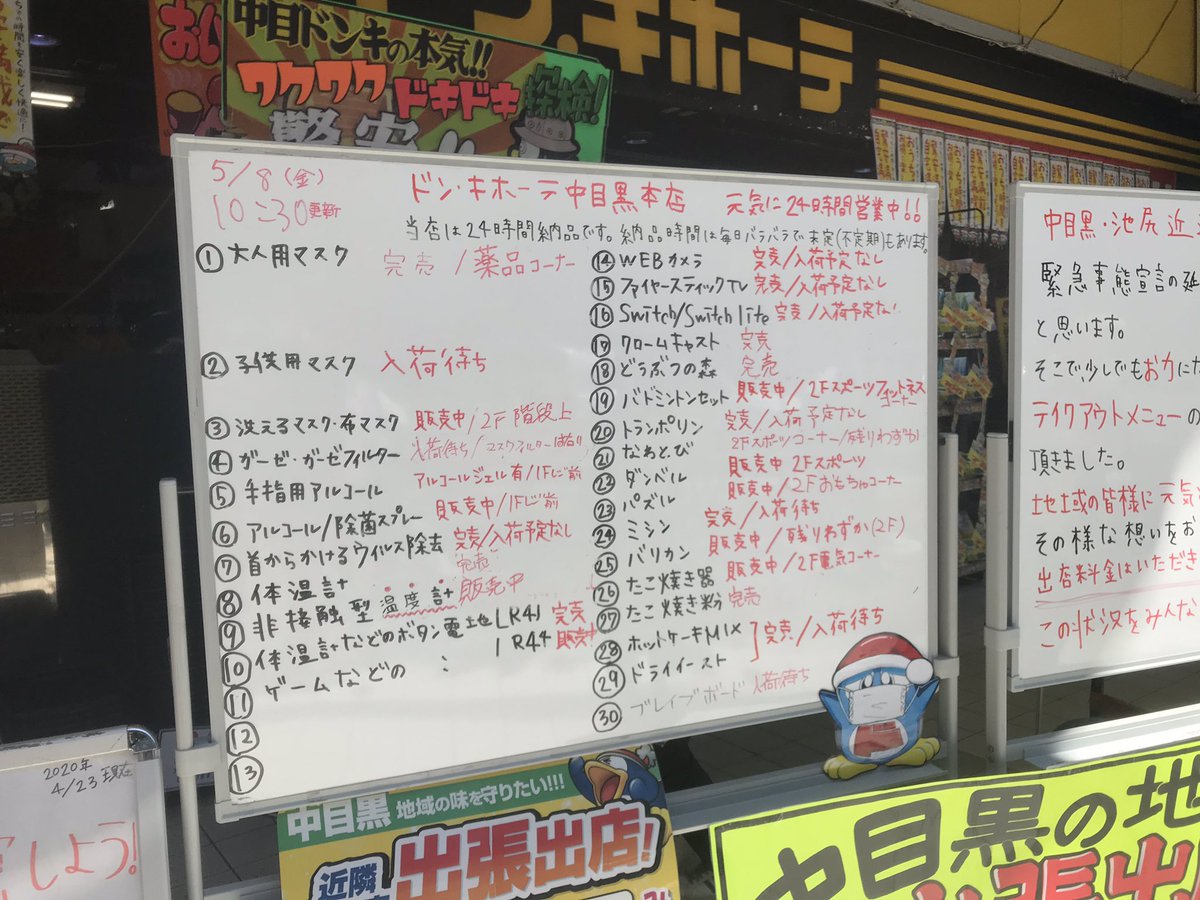 ドン.キホーテ
中目ドンキの本気!!
ワクワクドキドキ探検!
5/8(金)
10:30更新
ドン・キホーテ中目黒本店 元気に24時間営業中!!
当店は24時間納品です。納品時間は毎日バラバラで未定(不定期)もあります。
① 大人用マスク 完売/薬品コーナー
② 子供用マスク 入荷待ち
③ 洗えるマスク・布マスク 販売中/2F階段上
④ ガーゼ・ガーゼフィルター 入荷待ち/マスクフィルターはあり!!
⑤ 手指用アルコール アルコールジェル有/1Fレジ前
⑥ アルコール/除菌スプレー 販売中/1Fレジ前
⑦ 首からかけるウイルス除去 完売/入荷予定なし
⑧ 体温計 完売
⑨ 非接触型温度計 販売中
⑩ 体温計などのボタン電池LR41 完売
⑪ ゲームなどの 〃 LR44 販売中
⑫
⑬
⑭ WEBカメラ 完売/入荷予定なし
⑮ ファイヤースティックTV 完売/入荷予定なし
⑯ Switch/Switch lite 完売/入荷予定なし
⑰ クロームキャスト 完売
⑱ どうぶつの森 完売
⑲ バドミントンセット 販売中/2Fスポーツフィットネスコーナー
⑳ トランポリン 完売/入荷予定なし
㉑ なわとび 2Fスポーツコーナー/残りわずか
㉒ ダンベル 販売中 2Fスポーツ
㉓ パズル 販売中/2Fおもちゃコーナー
㉔ ミシン 完売/入荷待ち
㉕ バリカン 販売中/残りわずか(2F)
㉖ たこ焼き器 販売中/2F電気コーナー
㉗ たこ焼き粉 完売
㉘ ホットケーキMIX 完売/入荷待ち
㉙ ドライイースト
㉚ ブレイブボード 入荷待ち
中目黒・池尻近
緊急事態宣言の延
と思います。
そこで少しでもお力にな
テイクアウトメニューの
頂きました。
地域の皆様に元気
その様な想いをお
出店料金はいただき
この状況をみんな
2020年
4/23現在
しよう!
中目黒 地域の味を守りたい!!!
近隣
出張出店!
中目黒の地
出張出